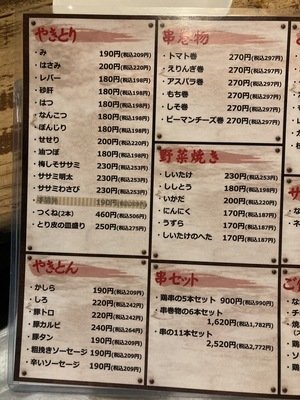 やきとり
・み 190円(税込209円)
・はさみ 200円(税込220円)
・レバー 180円(税込198円)
・砂肝 180円(税込198円)
・はつ 180円(税込198円)
・なんこつ 180円(税込198円)
・ぼんじり 180円(税込198円)
・せせり 200円(税込220円)
・油つぼ 180円(税込198円)
・梅しそササミ 230円(税込253円)
・ササミ明太 230円(税込253円)
・ササミわさび 230円(税込253円)
190円(税込209円)
・つくね(2本) 460円(税込506円)
・とり皮の皿盛り 250円(税込275円)
やきとん
・かしら 190円(税込209円)
・しろ 220円(税込242円)
・豚トロ 220円(税込242円)
・豚カルビ 240円(税込264円)
・豚タン 190円(税込209円)
・粗挽きソーセージ 190円(税込209円)
・辛いソーセージ 190円(税込209円)
串巻物
・トマト巻 270円(税込297円)
・えりんぎ巻 270円(税込297円)
・アスパラ巻 270円(税込297円)
・もち巻 270円(税込297円)
・しそ巻 270円(税込297円)
・ピーマンチーズ巻 270円(税込297円)
野菜焼き
・しいたけ 230円(税込253円)
・ししとう 180円(税込198円)
・いかだ 200円(税込220円)
・にんにく 170円(税込187円)
・うずら 170円(税込187円)
・しいたけのへた 170円(税込187円)
串セット
・鶏串の5本セット 900円(税込990円)
・串巻物の6本セット
1,620円(税込1,782円)
・串の11本セット
2,520円(税込2,772円)